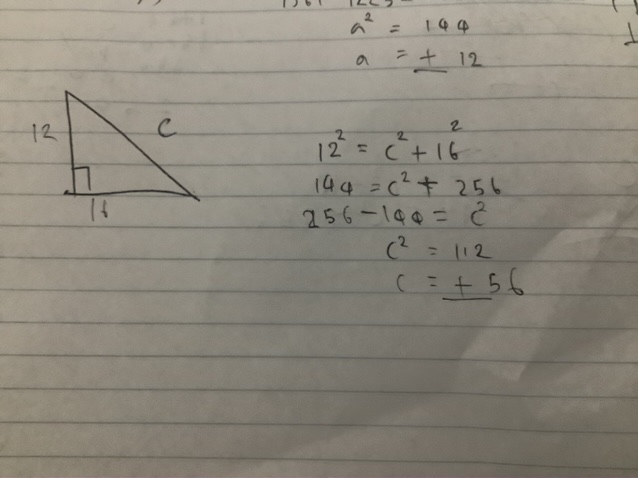 a² = 144
a = ± 12
12
C
16
12² = c² + 16²
144 = c² + 256
256 - 144 = c²
c² = 112
c = ± 56